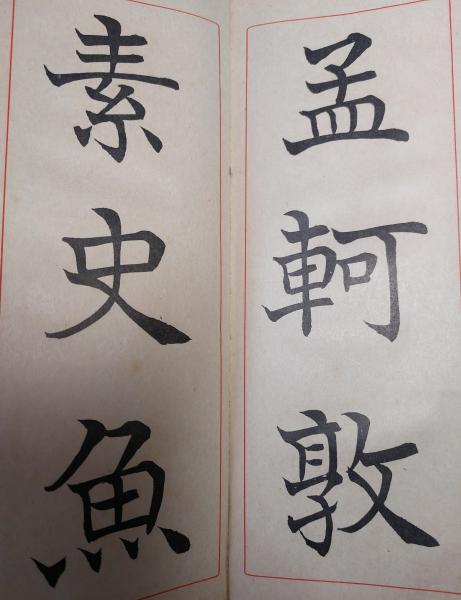 孟軻敦
素史魚